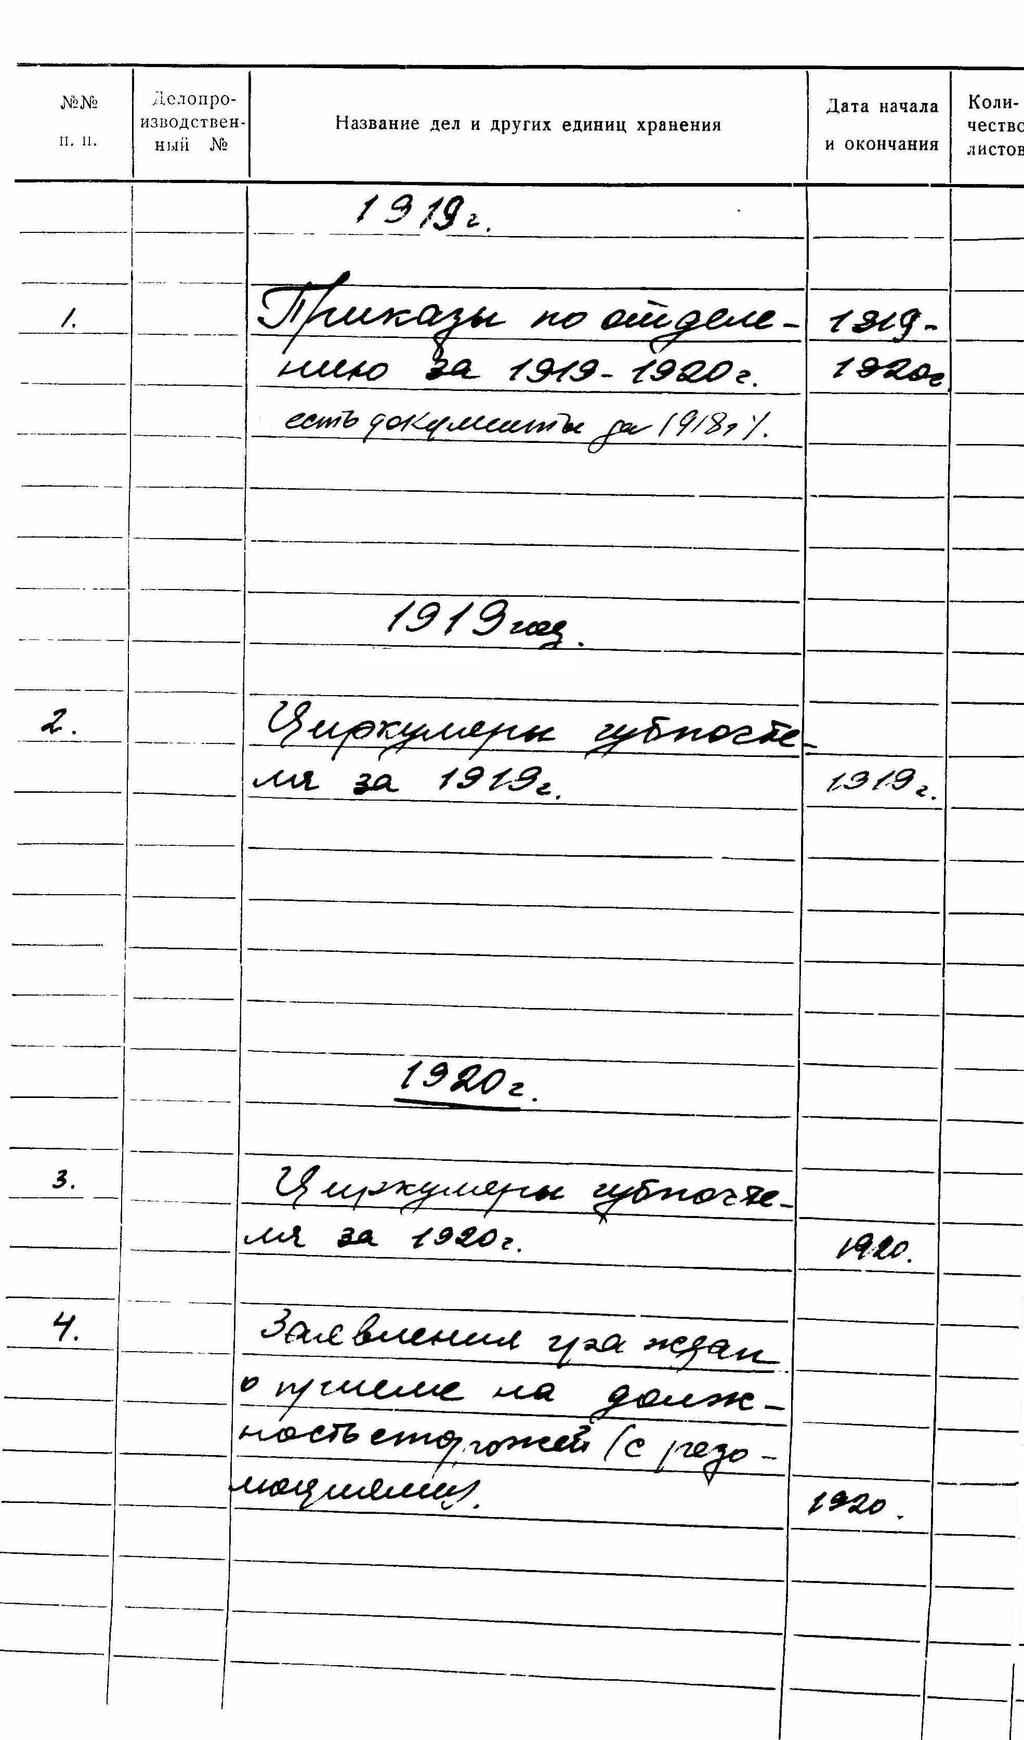 №№ п. п.
Делопро-
изводствен-
ный №
Название дел и других единиц хранения
Дата начала
и окончания
Коли-
чество
листов
1919г.
1. Приказы по отделе- 1919-
нию за 1919-1920г. 1920г
есть документы за 1918г.
1919 год.
2. Циркуляры губпочте-
ля за 1919г. 1919г.
1920г.
3. Циркуляры губпочте-
ля за 1920г. 1920.
4. Заявления граждан
о приеме на долж-
ность сторожей (с резо-
люциями). 1920.